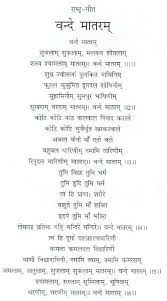 राष्ट्र-गीत
वन्दे मातरम्
वन्दे मातरम्
सुजलाम् सुफलाम्, मलयज शीतलाम्
शस्य श्यामलाम् मातरम्! वन्दे मातरम् ।।1।।
शुभ्र ज्योत्स्नां पुलकित यामिनीम्
फुल्ल कुसुमित द्रुमदल शोभिनीम्
सुहासिनीम् सुमधुर भाषिणीम्
सुखदाम् वरदाम् मातरम्! वन्दे मातरम्
कोटि कोटि कंठ कलकल निनाद कराले
कोटि कोटि
के बले मा तुमि अबले
बहुबल धारिणीम् नमामि तारिणीम्
रिपुदल वारिणीम् मातरम्! वन्दे मातरम्
तुमि विद्या तुमि धर्म
तुमि हृदि तुमि मर्म
त्वं हि प्राणाः शरीरे
बाहुते तुमि मां शक्ति
हृदये तुमि मां भक्ति
तोमारई प्रतिमा गड़ि मन्दिरे मन्दिरे।
त्वं हि दुर्गा दशप्रहरणधारिणी
कमला कमलदल विहारिणी
वाणी विद्यादायिनी, नमामि त्वाम्
अमलाम्, अतुलाम्, सुजलाम् सुफलाम्, मातरम्! वन्दे मातरम्
श्यामलाम्, सरलाम्, सुस्मिताम्, भूषिताम्
धरणीम्, भरणीम्, मातरम्! वन्दे मातरम्